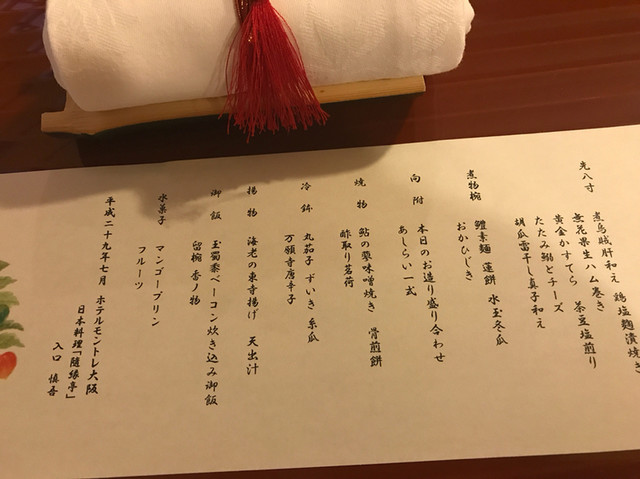 先八寸
煮烏賊肝和え 鶏塩麹漬焼き
無花果生ハム巻き 茶豆塩煎り
黄金かすてら
たたみ鰯とチーズ
胡瓜雷干し真子和え
煮物椀
鱧素麺 蓮餅 水玉冬瓜
おかひじき
向附
本日のお造り盛り合わせ
あしらい一式
焼物
鮎の蓼味噌焼き 骨煎餅
酢取り茗荷
冷鉢
丸茄子 ずいき 糸瓜
万願寺唐辛子
揚物
海老の東寺揚げ 天出汁
御飯
玉蜀黍ベーコン炊き込み御飯
留椀 香の物
水菓子
マンゴープリン
フルーツ
平成二十九年七月 ホテルモントレ大阪
日本料理「隨縁亭」
入口 慎吾